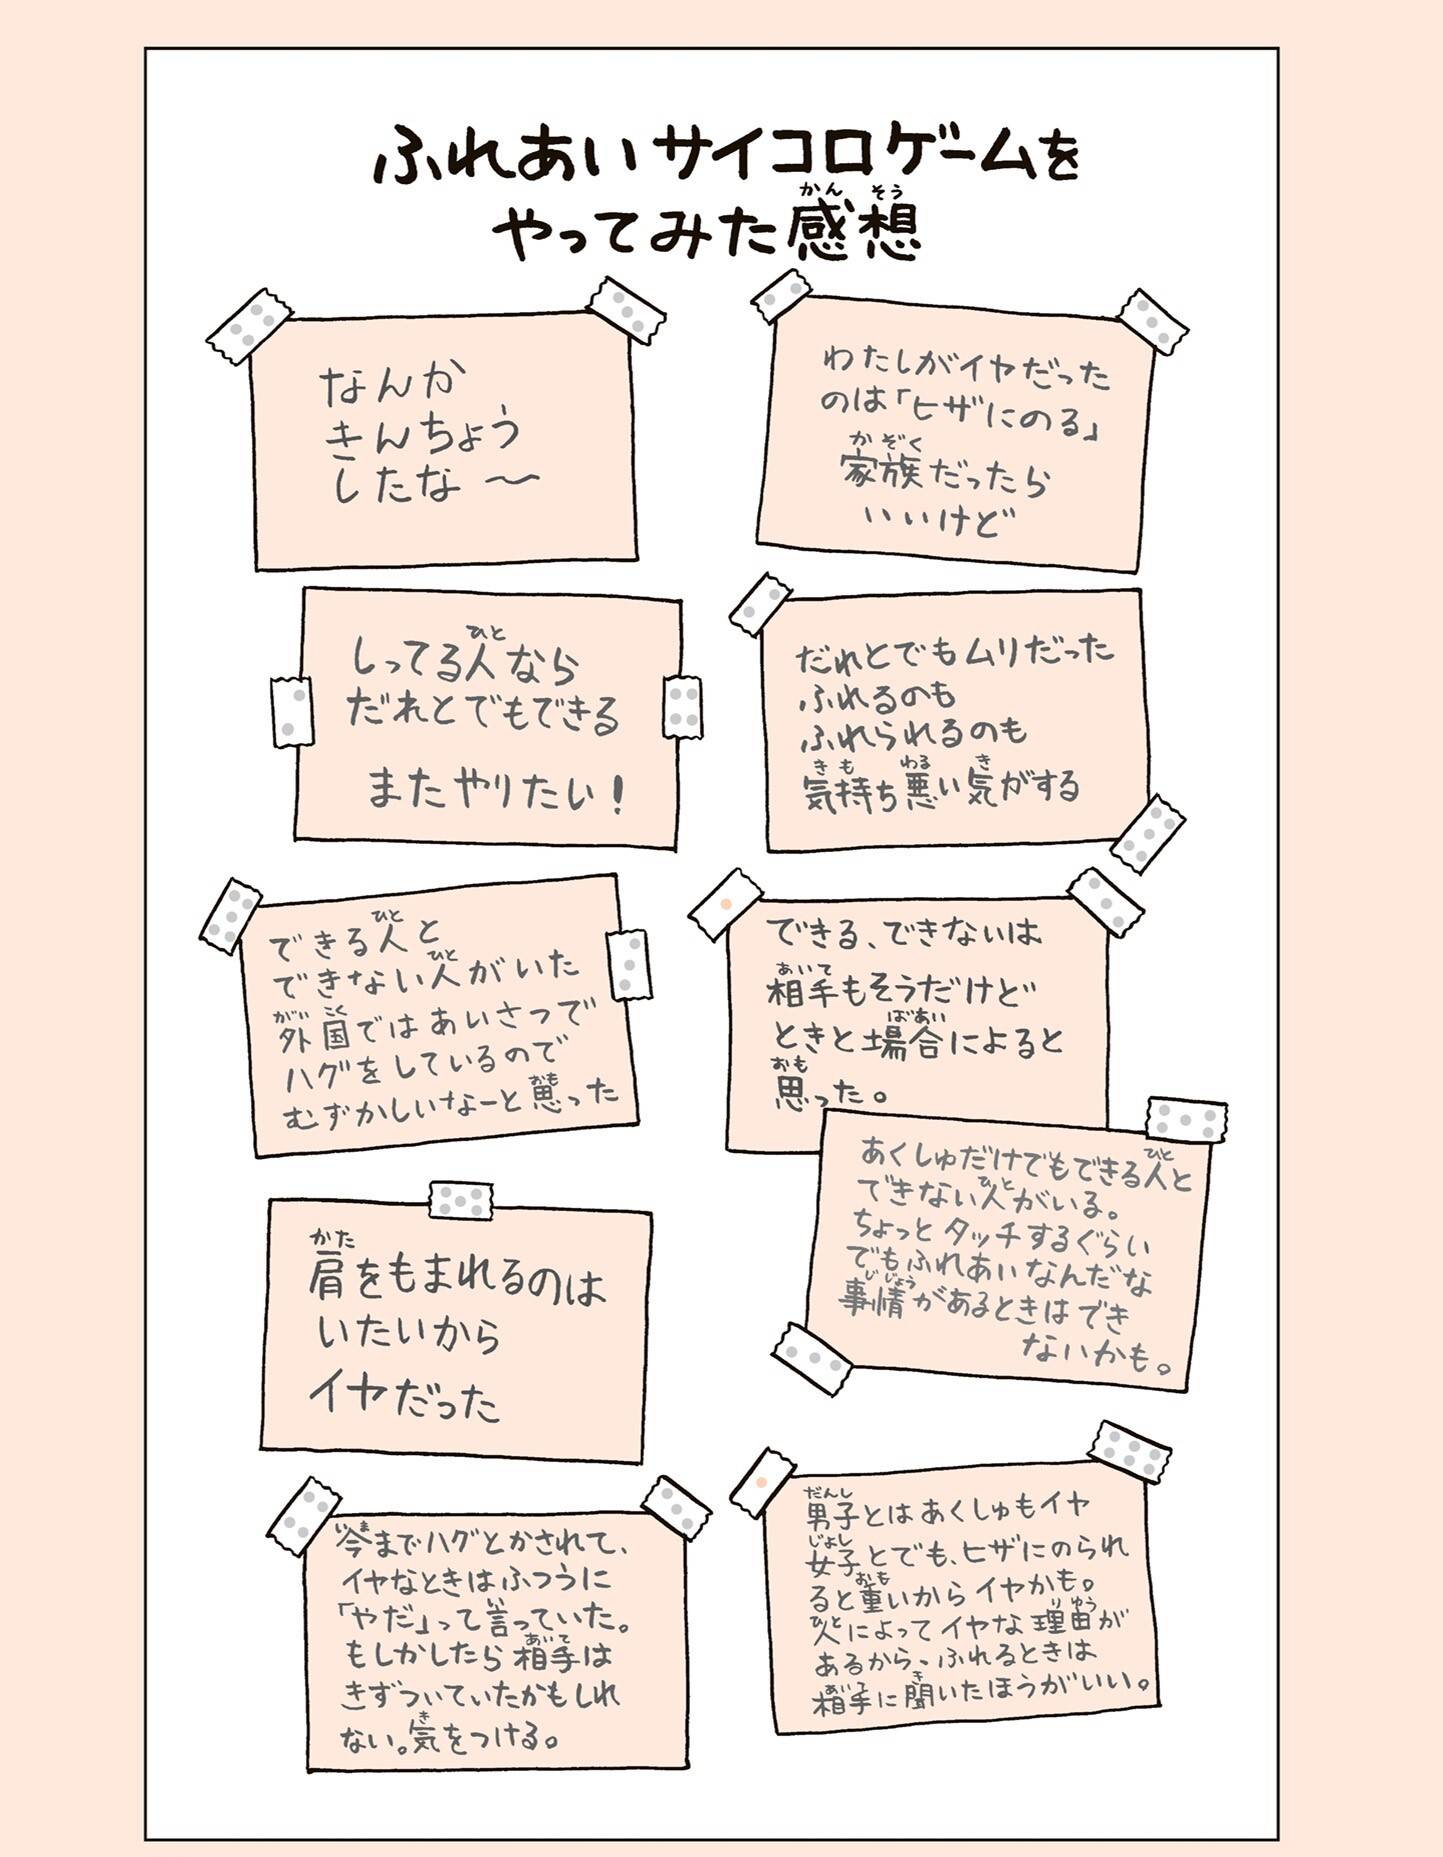 ふれあいサイコロゲームを
やってみた感想
かん そう
なんか
きんちょう
したな〜
わたしがイヤだった
のは「ヒザにのる」
かぞく
家族だったら
いいけど
ひと
しってる人なら
だれとでもできる
またやりたい!
だれとでもムリだった
ふれるのも
ふれられるのも
きも わる き
気持ち悪い気がする
ひと
できる人と
ひと
できない人がいた
がいこく
外国ではあいさつで
ハグをしているので
おも
むずかしいなーと思った
できる、できないは
あいて
相手もそうだけど
ばあい
ときと場合によると
おも
思った。
ひと
あくしゅだけでもできる人と
ひと
できない人がいる。
ちょっとタッチするぐらい
でもふれあいなんだな
じじょう
事情があるときはでき
ないかも。
かた
肩をもまれるのは
いたいから
イヤだった
いま
今までハグとかされて、
イヤなときはふつうに
い
「やだ」って言っていた。
あいて
もしかしたら相手は
きずついていたかもしれ
き
ない。気をつける。
だんし
男子とはあくしゅもイヤ
じょし
女子とでも、ヒザにのられ
おも
ると重いからイヤかも。
ひと りゆう
人によってイヤな理由が
あるから、ふれるときは
あいて き
相手に聞いたほうがいい。